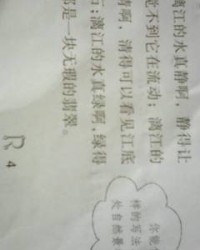 漓江的水真静啊，静得让
觉不到它在流动；漓江的
清啊，清得可以看见江底
；漓江的水真绿啊，绿得
那是一块无瑕的翡翠。
你能
样的写法
处自然景
4